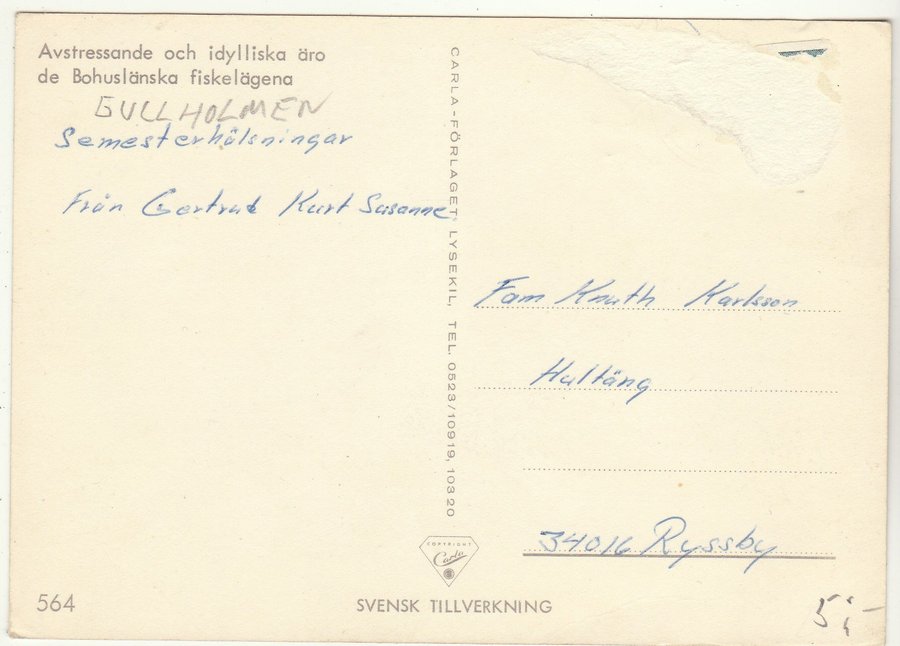 Avstressande och idylliska äro
de Bohuslänska fiskelägena
GULLHOLMEN
Semesterhälsningar
Från Gertrud Kurt Susanne
CARLA-FÖRLAGET, LYSEKIL, TEL. 0523/10919, 10320
Fam Knuth Karlsson
Hultäng
34016 Ryssby
COPYRIGHT
Carla
564
SVENSK TILLVERKNING